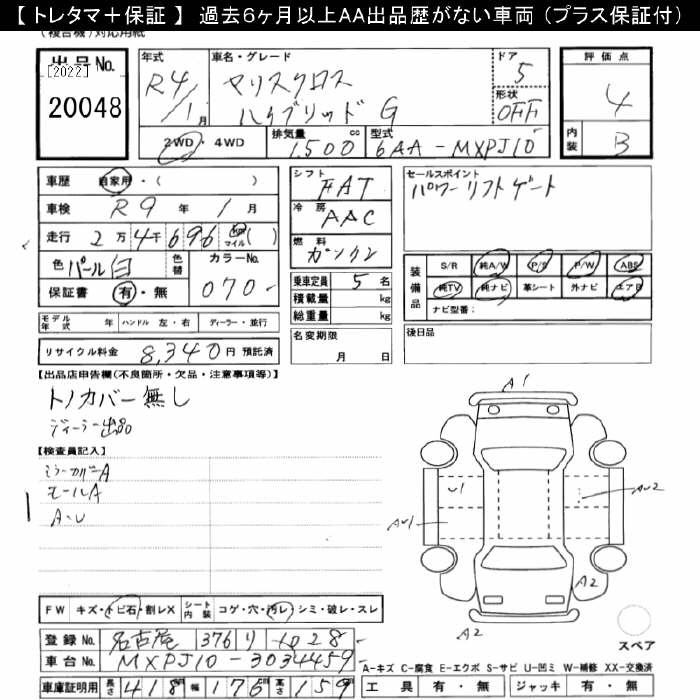 【 トレタマ＋保証 】 過去６ヶ月以上ＡＡ出品歴がない車両 （プラス保証付）
(複合機)対応用紙
出品No. [2022] 20048
年式 R4/1月
車名・グレード ヤリスクロス ハイブリッド G
ドア 5
形状 OFF
評価点 4
内装 B
2WD・4WD
排気量 1,500 cc
型式 6AA-MXPJ10
車歴 自家用・( )
車検 R9年 1月
走行 2万4千696 km マイル( )
色 パール白 色替
カラーNo. 070-
保証書 有・無
モデル年式 年 ハンドル 左・右 ディーラー・並行
リサイクル料金 8,340円 預託済
シフト FAT
冷房 AAC
燃料 ガソリン
乗車定員 5名
積載量 kg
総重量 kg
名変期限 月 日
セールスポイント
パワーリフトゲート
装備品 S/R 純A/W P/S P/W ABS
純TV 純ナビ 革シート 外ナビ エアB
ナビ型番:
後日品
【出品店申告欄(不良箇所・欠品・注意事項等)】
トノカバー無し
ディーラー出品
【検査員記入】
ミラーカバーA
モールA
A・U
A1
U1
AU2
AU1
A2
A2
スペア
FW キズ・トビ石・割レX シート内装 コゲ・穴・汚レ・シミ・破レ・スレ
登録No. 名古屋 376 り 1028
車台No. MXPJ10-3034459
A-キズ C-腐食 E-エクボ S-サビ U-凹ミ W-補修 XX-交換済
車庫証明用 長さ 418 幅 176 高さ 159
工具 有・無 ジャッキ 有・無